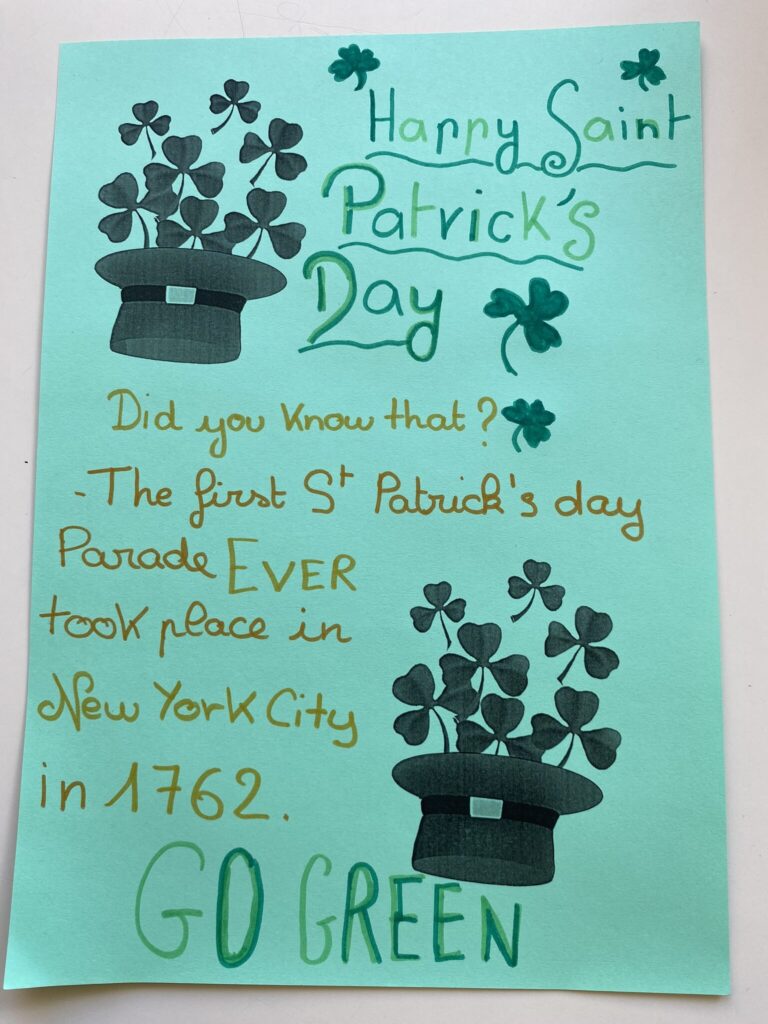 Happy Saint
Patrick's
Day
Did you know that?
- The first St Patrick's day
Parade EVER
took place in
New York City
in 1762.
GO GREEN